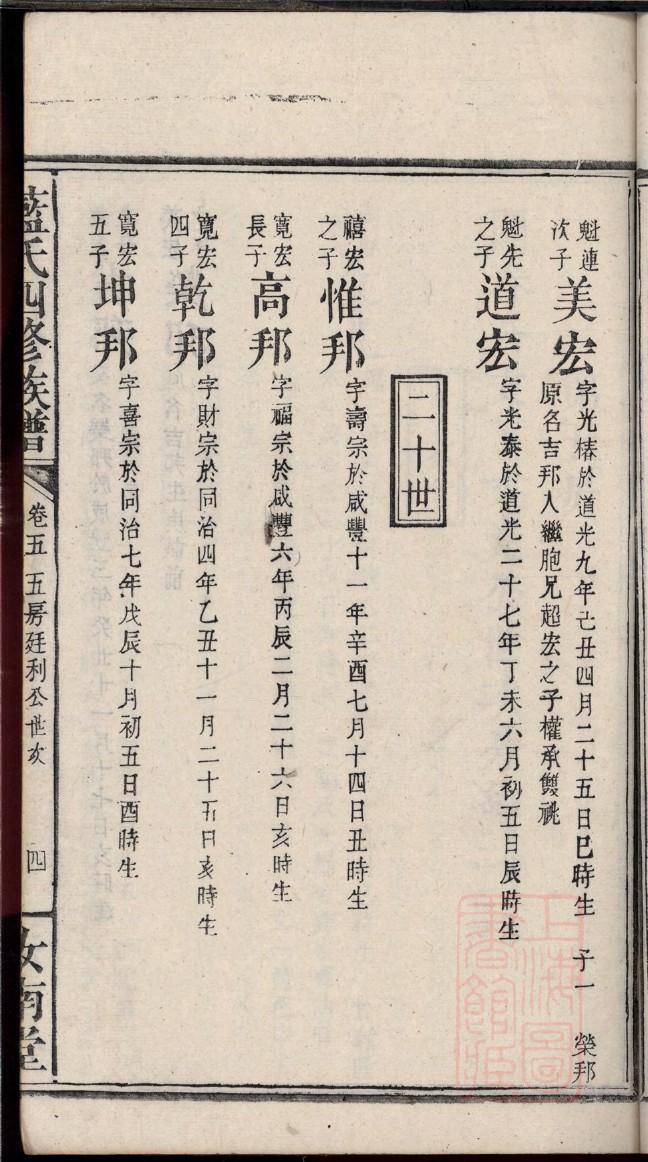 魁連次子美宏字光椿於道光九年己丑四月二十五日巳時生 子一 榮邦
原名吉邦入繼胞兄超宏之子權承雙祧
魁先之子道宏字光泰於道光二十七年丁未六月初五日辰時生
二十世
禧宏之子惟邦字壽宗於咸豐十一年辛酉七月十四日丑時生
寬宏長子高邦字福宗於咸豐六年丙辰二月二十六日亥時生
寬宏四子乾邦字財宗於同治四年乙丑十一月二十五日亥時生
寬宏五子坤邦字喜宗於同治七年戊辰十月初五日酉時生
藍氏四修族譜 卷五 五房廷利公世次 四 汝南堂
上海圖書館藏